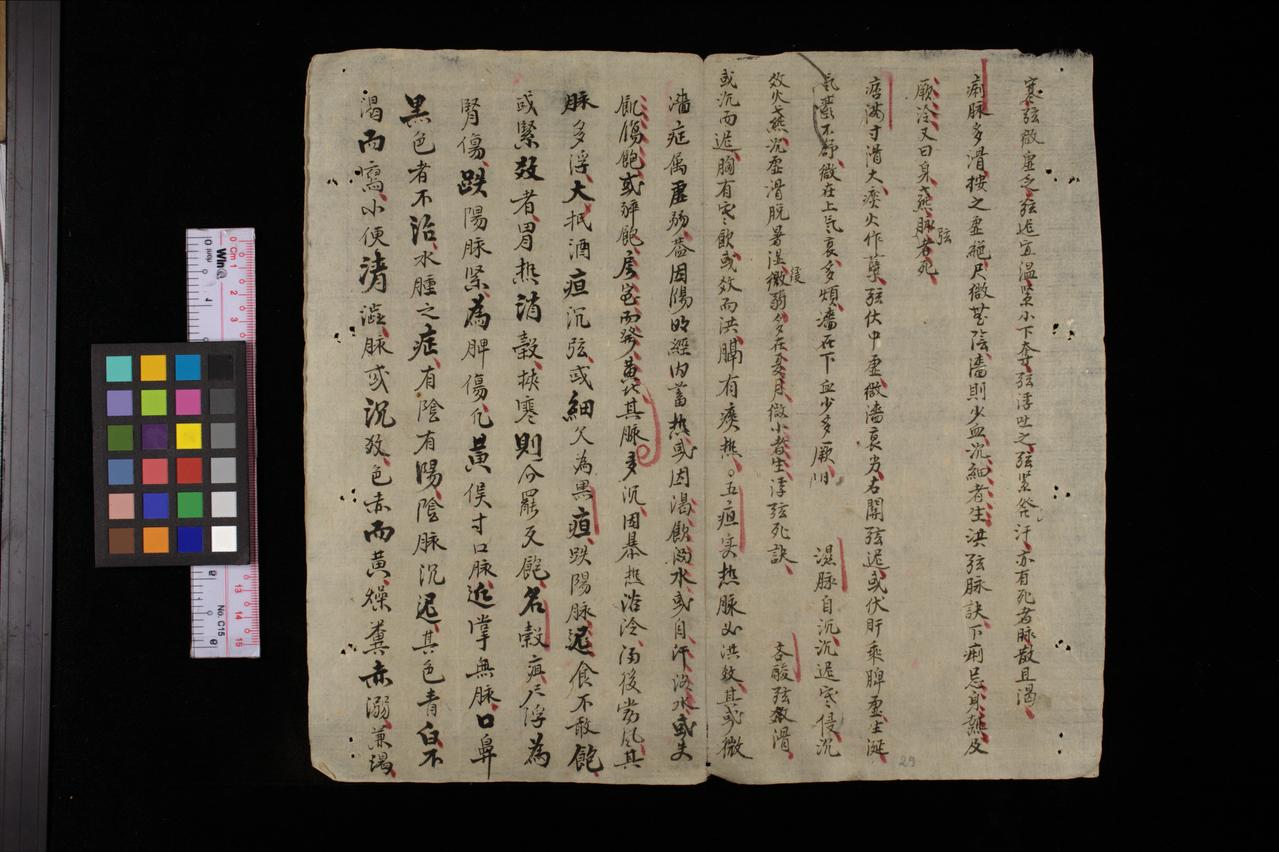 寒弦微虛之弦遲宜溫緊小下奪弦浮吐之弦緊發汗亦有死者脉散且渴
痢脉多滑按之虛絕尺微無陰濇則少血沉細者生洪弦脉訣下痢忌身熱及
厥冷又曰身熱脉弦者死
痞滿寸滑大痰火作孽弦伏中虛微濇衰劣右關弦遲或伏肝乘脾虛生涎
氣鬱不舒微在上氣衰多煩濇在下血少多厥
濕脉自沉沉遲寒侵沉
效火燕沉虛滑脱暑濕微弱多在夏月微小者生浮弦死訣
吞酸弦數滑
或沉而遲胸有寒飲或效而洪膈有痰热五疸实热脉必洪效其或微
濇症屬虛弱盖因陽明經内蓄热或因渴飲酒水或自汗浴水或失
飢傷飽或醉飽房室而發黄其脉多沉因暴热浴冷酒後當風其
脉多浮大抵酒疸沉弦或細欠為黑疸趺陽脉遲食不敢飽
或緊效者胃热消穀挟寒則食罷反飽名穀疸尺浮為
腎傷趺陽脉緊為脾傷凢黄候寸口脉近掌無脉口鼻
黑色者不治水腫之症有陰有陽陰脉沉遲其色青白不
渴而瀉小便清澁脉或沉效色赤而黄燥糞赤溺兼渴
29
Cm 1 2 3 13 14 15
No. C15